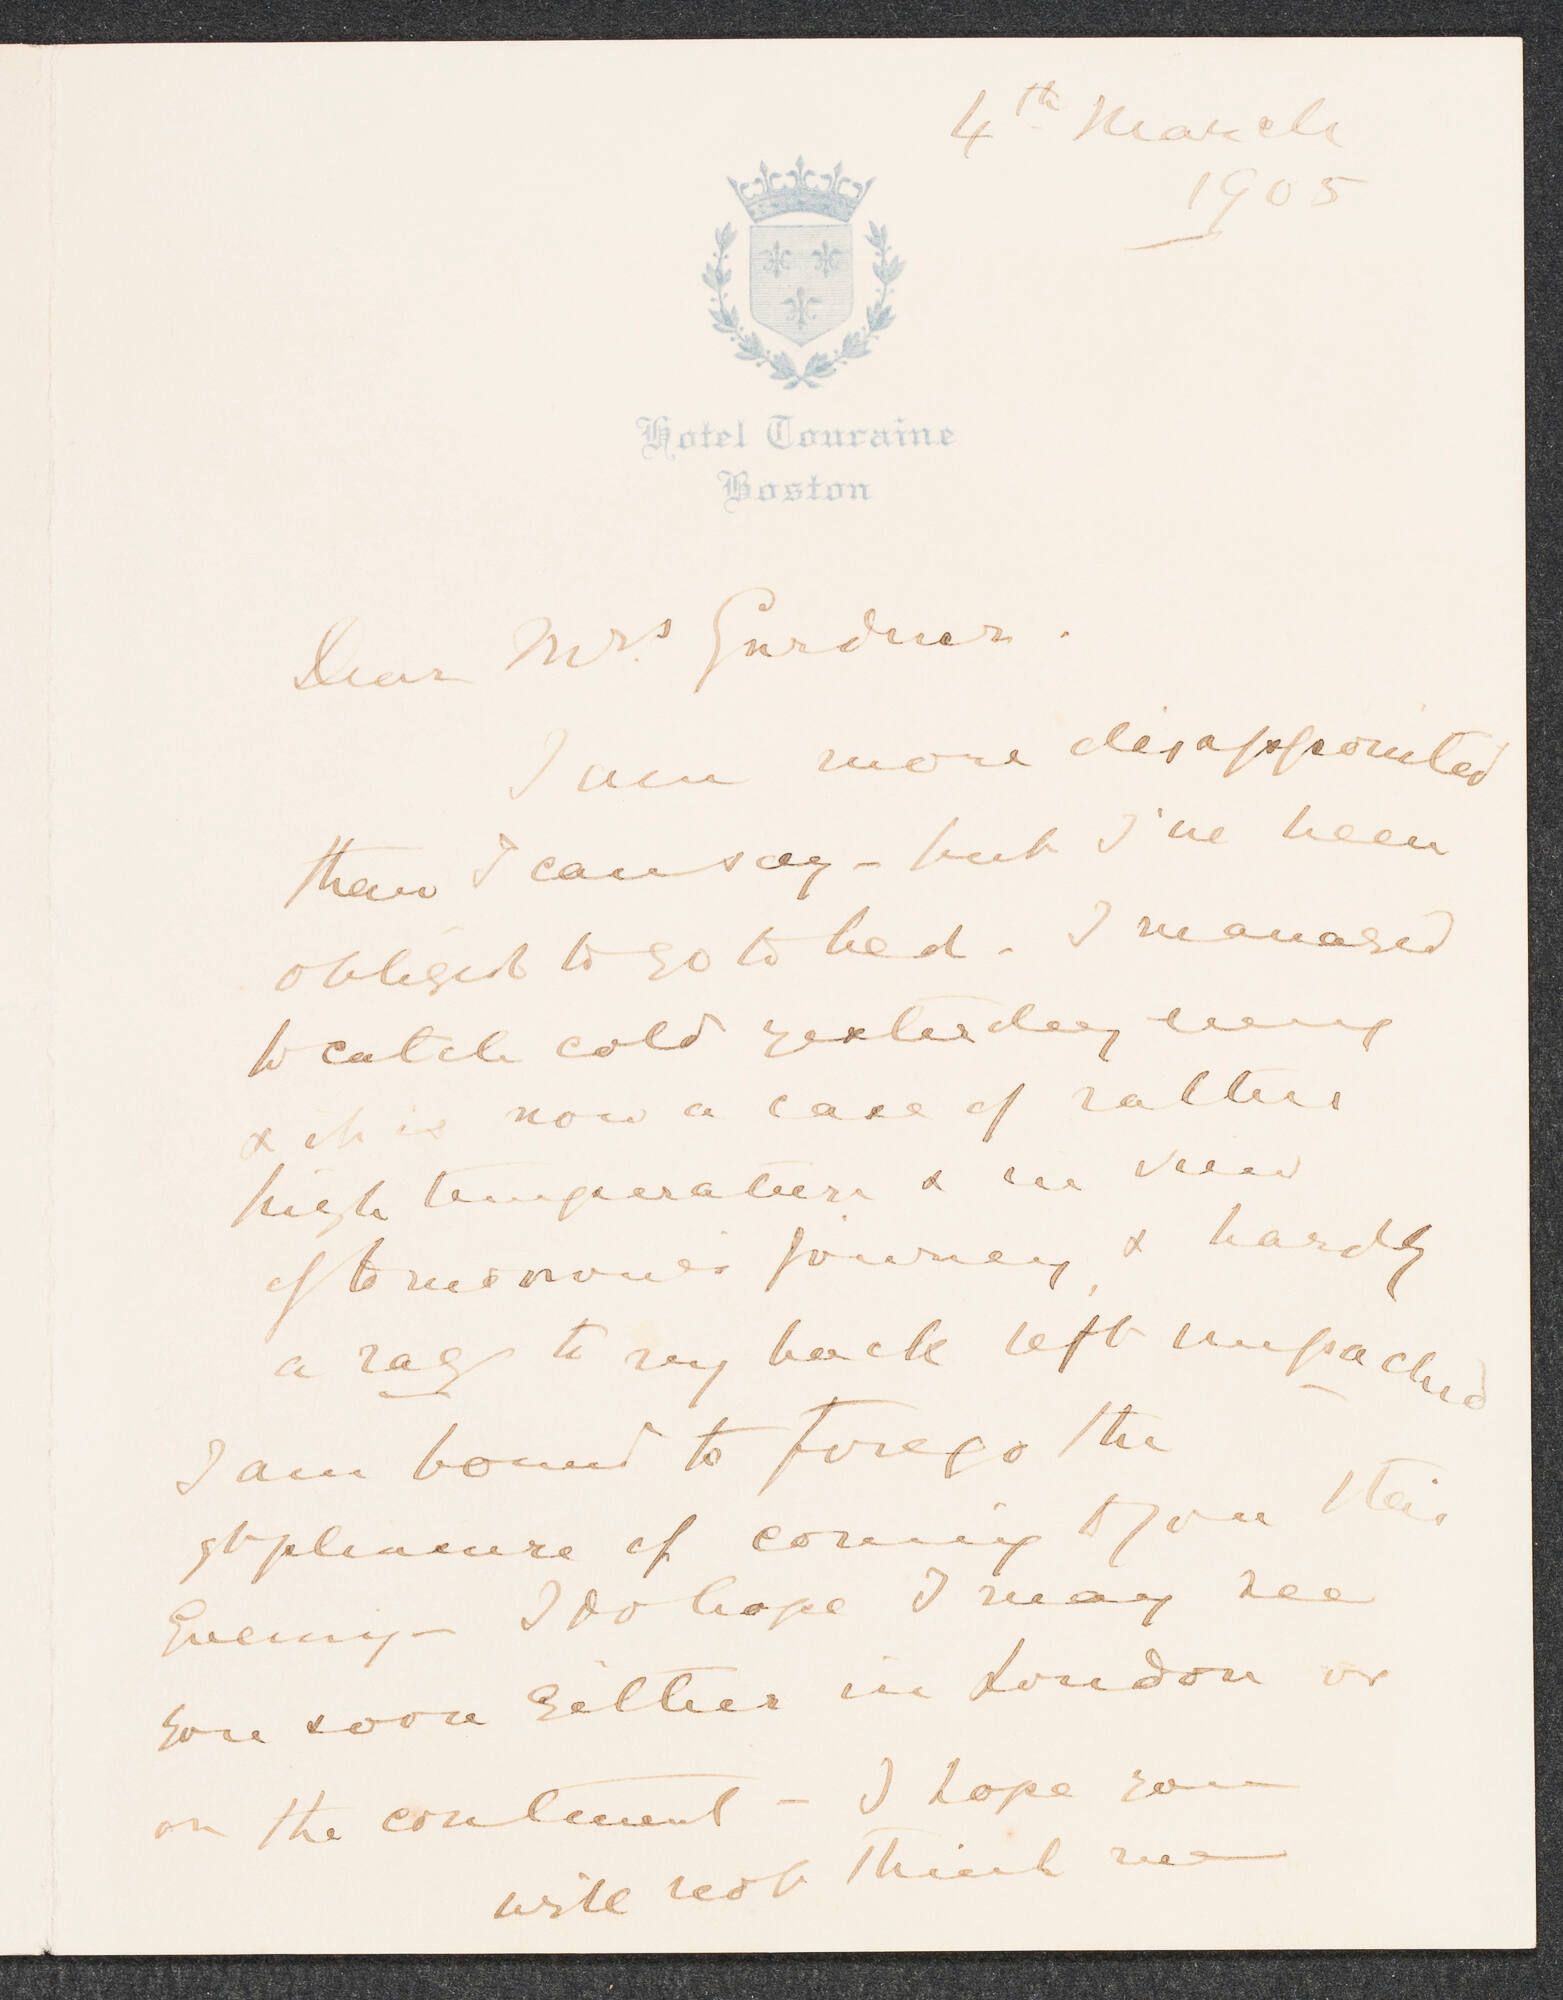 4th March
1905
Hotel Touraine
Boston
Dear Mrs Gardner.
I am more disappointed
than I can say - but I've been
obliged to go to bed. I managed
to catch cold yesterday evening
& it is now a case of rather
high temperature & in view
of tomorrow's journey, & hardly
a rag to my back left unpacked
I am bound to forego the
gt pleasure of coming to you this
Evening - I do hope I may see
you soon Either in London or
on the continent - I hope you
will not think me